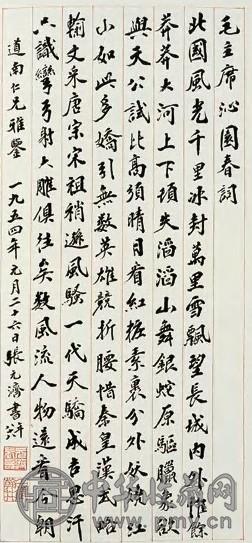 毛主席沁園春詞
北國風光千里冰封萬里雪飄望長城內外惟餘
莽莽大河上下頓失滔滔山舞銀蛇原驅臘象欲
與天公試比高須晴日看紅粧素裹分外妖嬈江
山如此多嬌引無數英雄競折腰惜秦皇漢武略
輸文采唐宗宋祖稍遜風騷一代天驕成吉思汗
只識彎弓射大雕俱往矣數風流人物還看今朝
道南仁兄雅鑒 一九五四年元月二十六日張元濟書